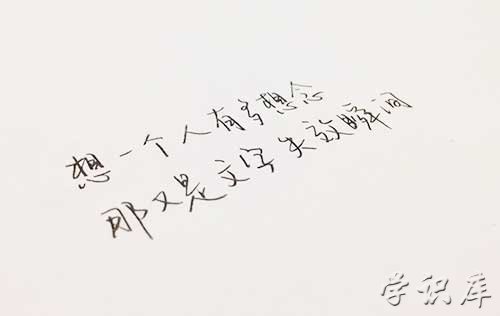 想一个人有多想念
那又是文字失效瞬间
学识库